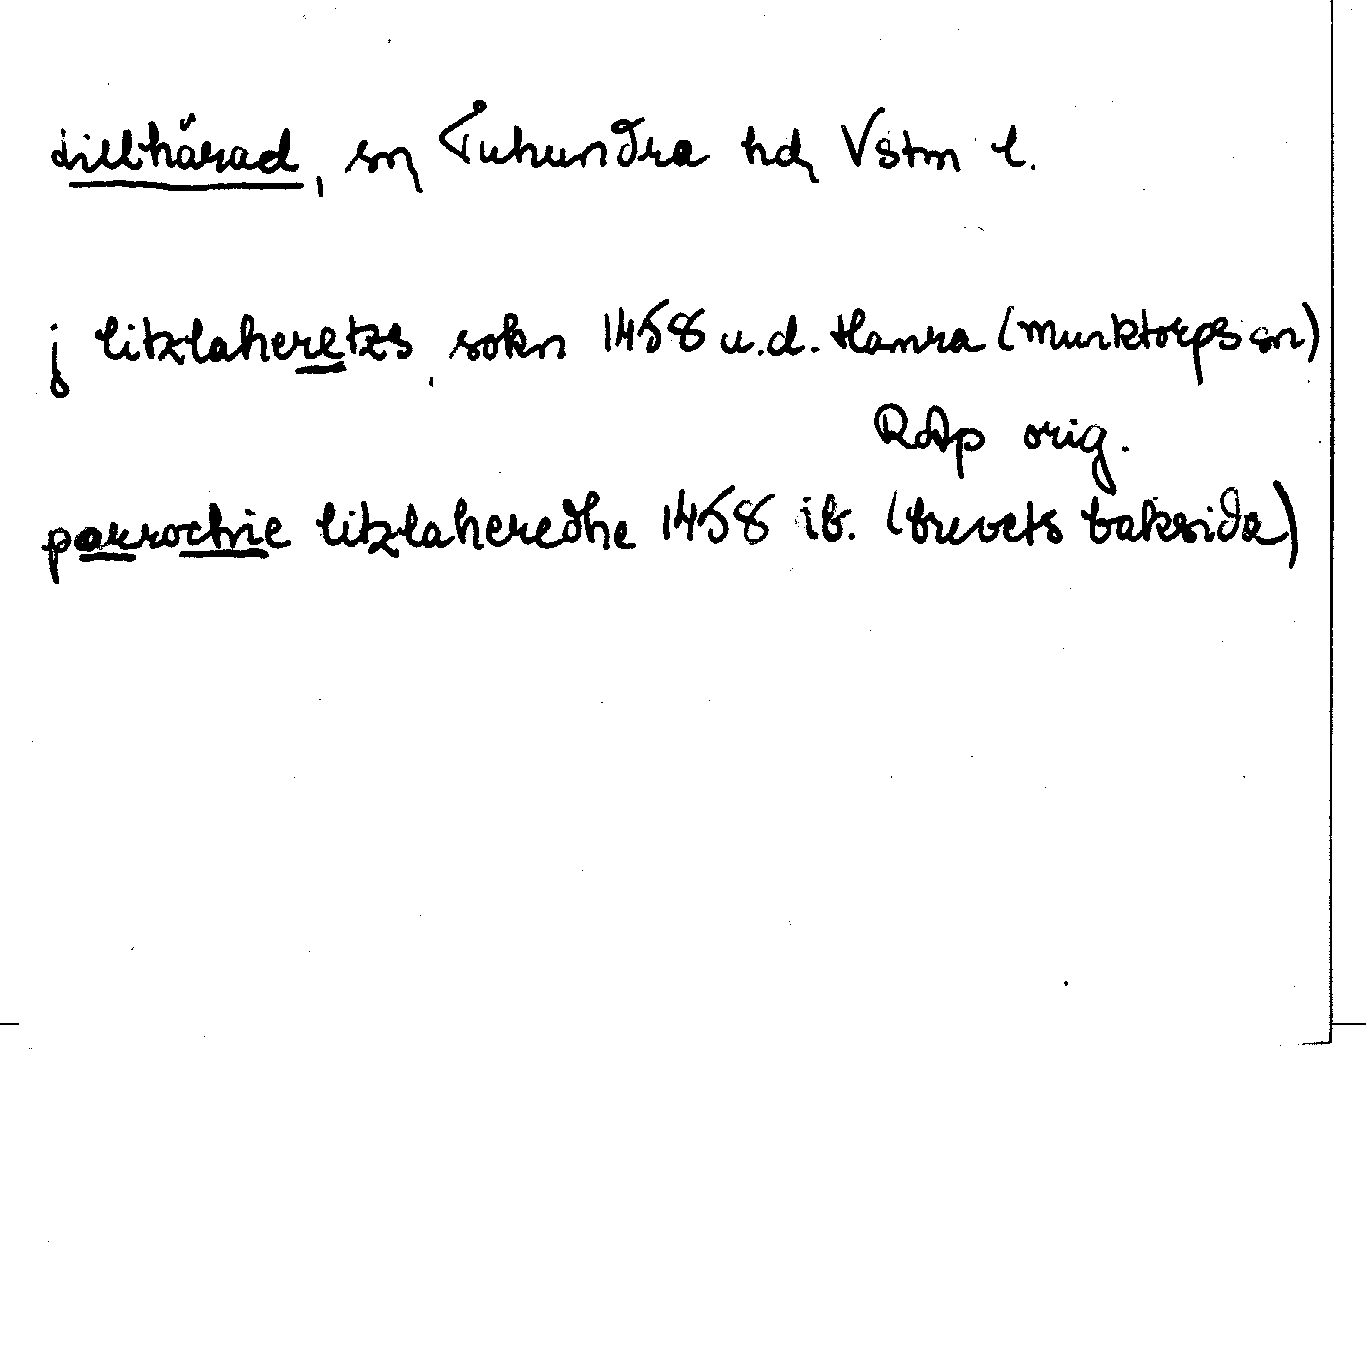 Lillhärad, sn Tuhundra hd Vstm l.
j litzlaheretzs sokn 1458 u.d. Hamra (Munktorps sn)
RAp orig.
parrochie litzlaheredhe 1458 ib. (brevets baksida)